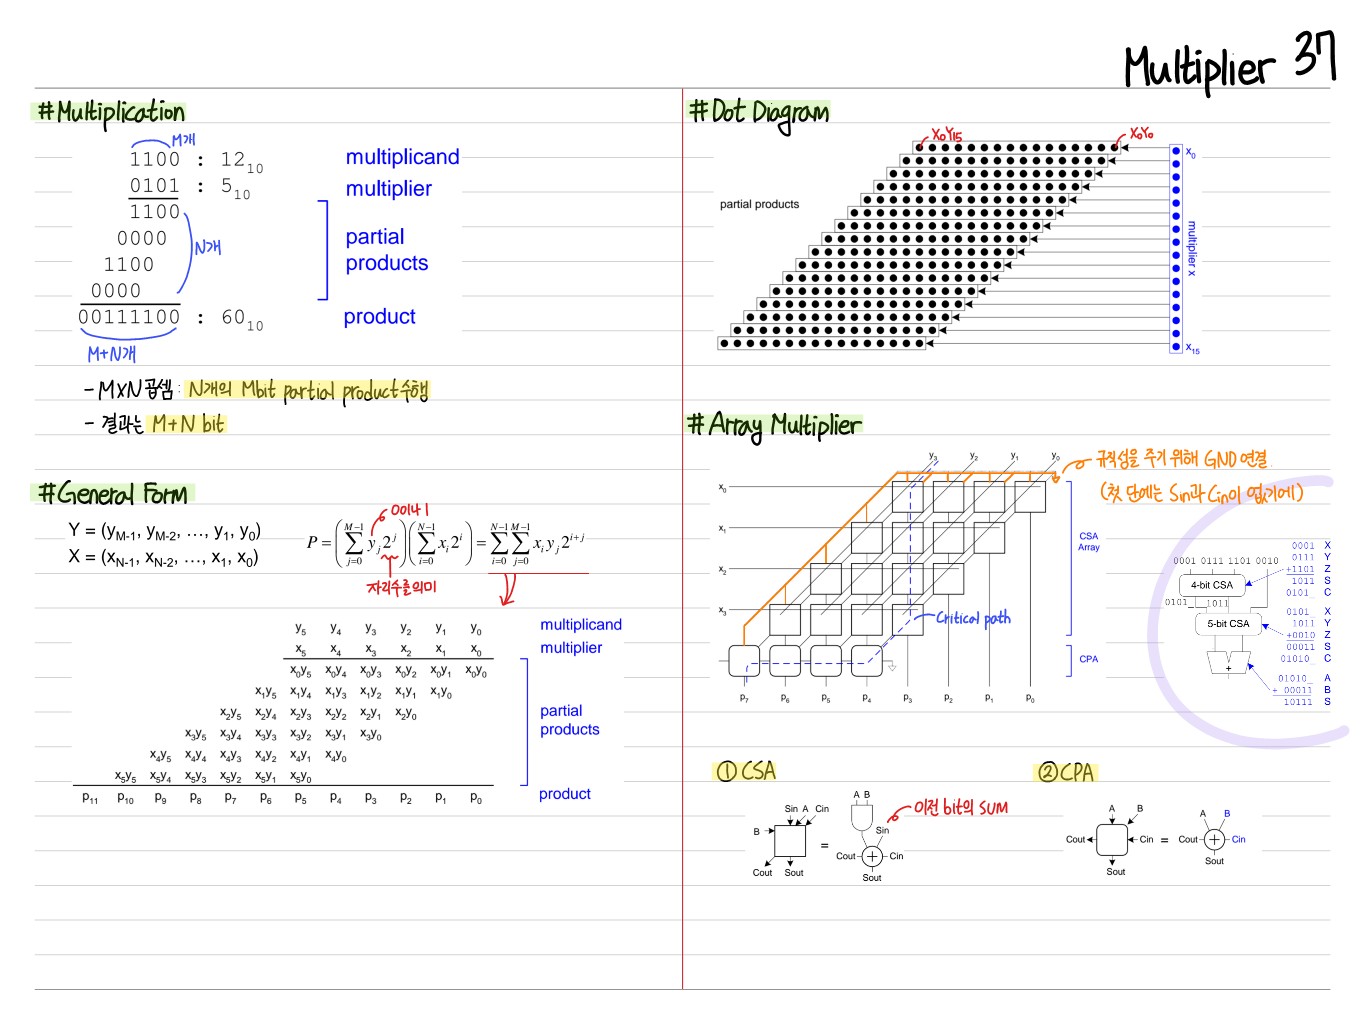 Multiplier 37
#Multiplication
M개
1100 : 12₁₀ multiplicand
0101 : 5₁₀ multiplier
1100
0000
1100
0000
N개
partial
products
00111100 : 60₁₀ product
M+N개
- M×N 곱셈 : N개의 Mbit partial product 수행
- 결과는 M+N bit
#General Form
Y = (y_{M-1}, y_{M-2}, ..., y₁, y₀)
X = (x_{N-1}, x_{N-2}, ..., x₁, x₀)
0이나 1
P = (∑_{j=0}^{M-1} y_j 2^j)(∑_{i=0}^{N-1} x_i 2^i) = ∑_{i=0}^{N-1} ∑_{j=0}^{M-1} x_i y_j 2^{i+j}
자리수를 의미
y₅ y₄ y₃ y₂ y₁ y₀ multiplicand
x₅ x₄ x₃ x₂ x₁ x₀ multiplier
x₀y₅ x₀y₄ x₀y₃ x₀y₂ x₀y₁ x₀y₀
x₁y₅ x₁y₄ x₁y₃ x₁y₂ x₁y₁ x₁y₀
x₂y₅ x₂y₄ x₂y₃ x₂y₂ x₂y₁ x₂y₀
x₃y₅ x₃y₄ x₃y₃ x₃y₂ x₃y₁ x₃y₀
x₄y₅ x₄y₄ x₄y₃ x₄y₂ x₄y₁ x₄y₀
x₅y₅ x₅y₄ x₅y₃ x₅y₂ x₅y₁ x₅y₀
partial
products
p₁₁ p₁₀ p₉ p₈ p₇ p₆ p₅ p₄ p₃ p₂ p₁ p₀ product
#Dot Diagram
X₀Y₁₅ X₀Y₀
x₀
partial products
multiplier x
x₁₅
#Array Multiplier
y₃ y₂ y₁ y₀
규칙성을 주기 위해 GND 연결
(첫 단에는 Sin과 Cin이 없기에)
x₀
x₁
x₂
x₃
CSA
Array
Critical path
CPA
p₇ p₆ p₅ p₄ p₃ p₂ p₁ p₀
0001 0111 1101 0010
4-bit CSA
0101_ 1011
5-bit CSA
+
0001 X
0111 Y
+1101 Z
1011 S
0101_ C
0101_ X
1011 Y
+0010 Z
00011 S
01010_ C
01010_ A
+ 00011 B
10111 S
① CSA
Sin A Cin
B
Cout Sout
=
A B
Sin
Cout + Cin
Sout
이전 bit의 SUM
② CPA
A B
Cout Cin
Sout
=
A B
Cout + Cin
Sout